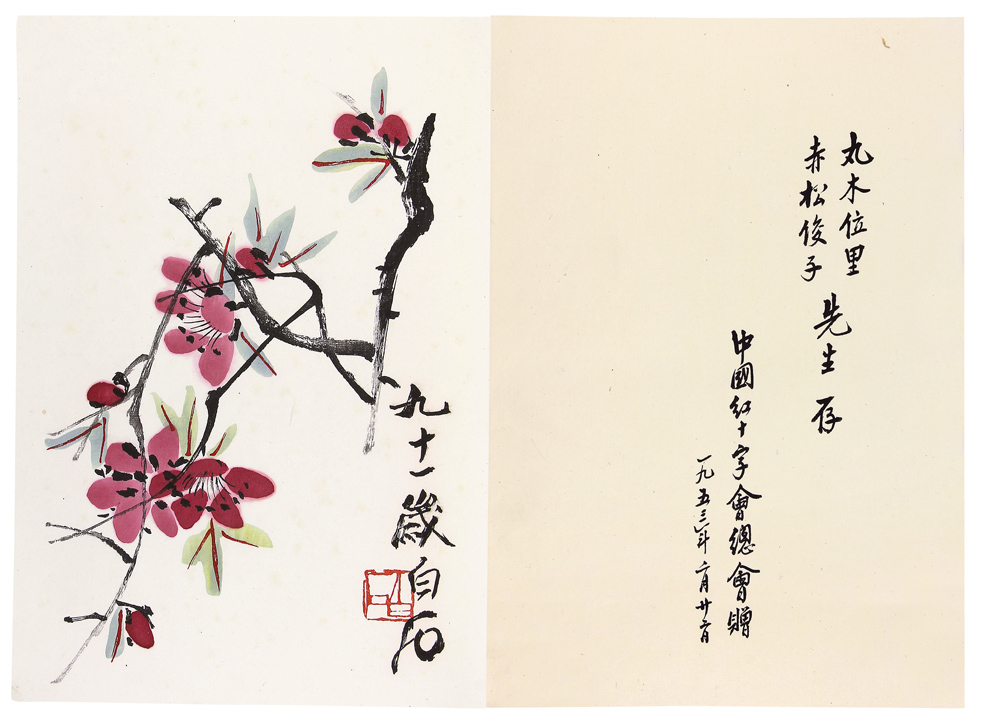 丸木位里
赤松俊子
先生存
中國红十字會總會贈
一九五三年二月廿二日
九十一歲白石